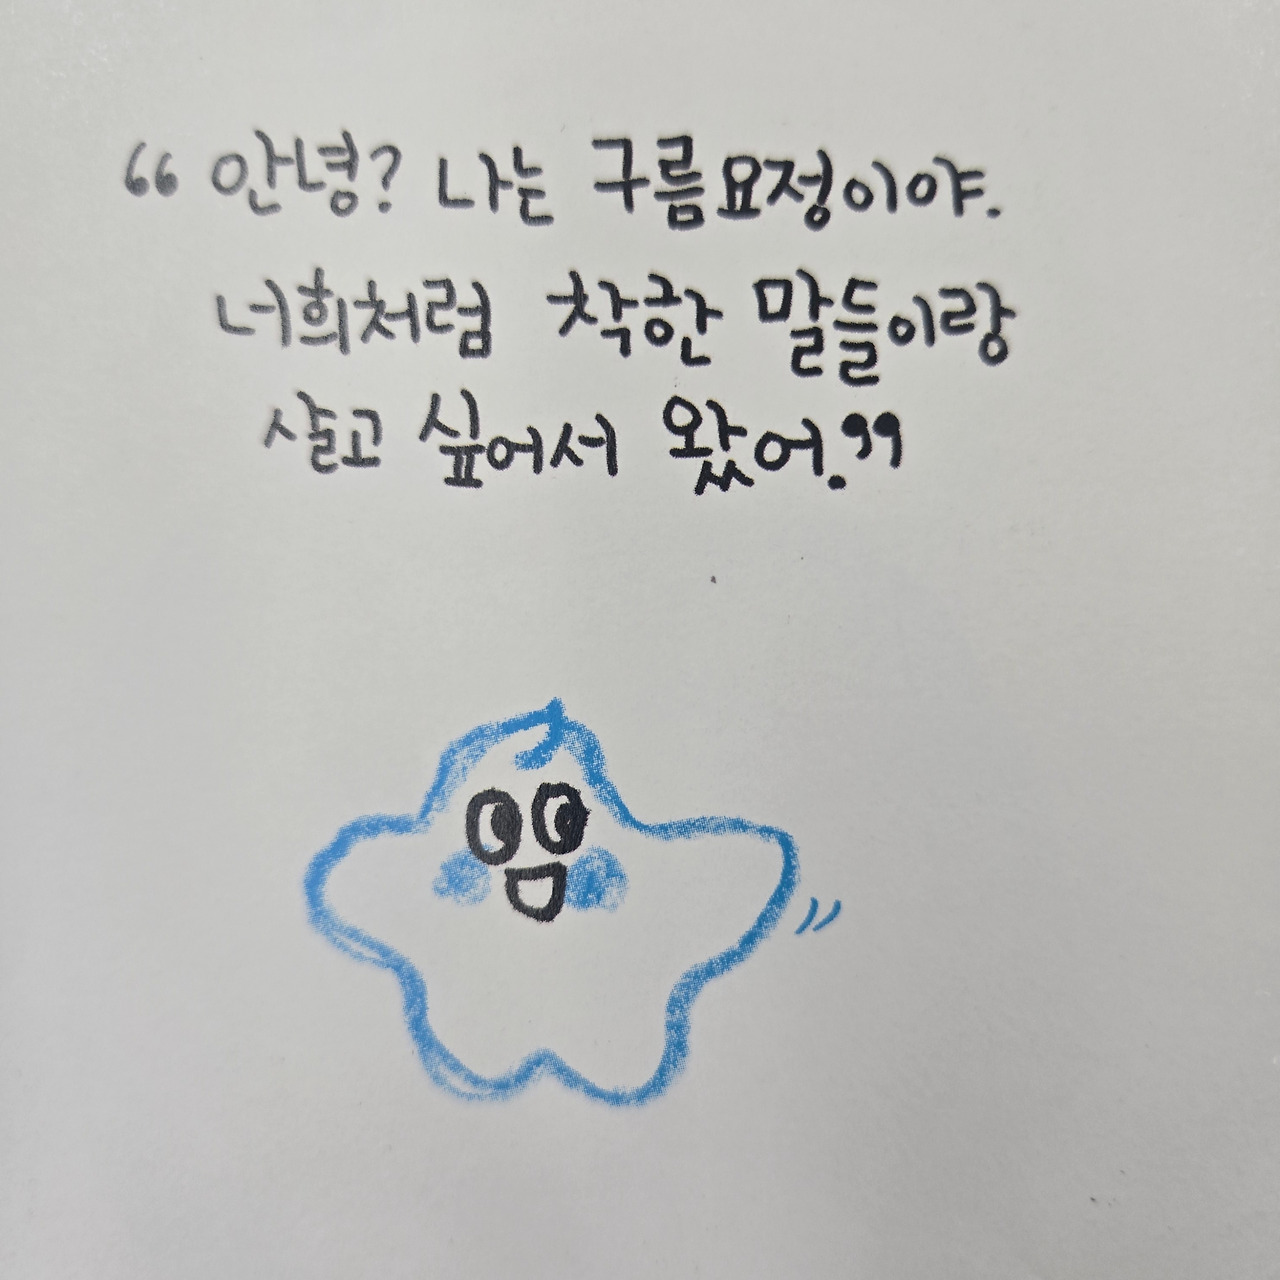 “안녕? 나는 구름요정이야.
너희처럼 착한 말들이랑
살고 싶어서 왔어.”